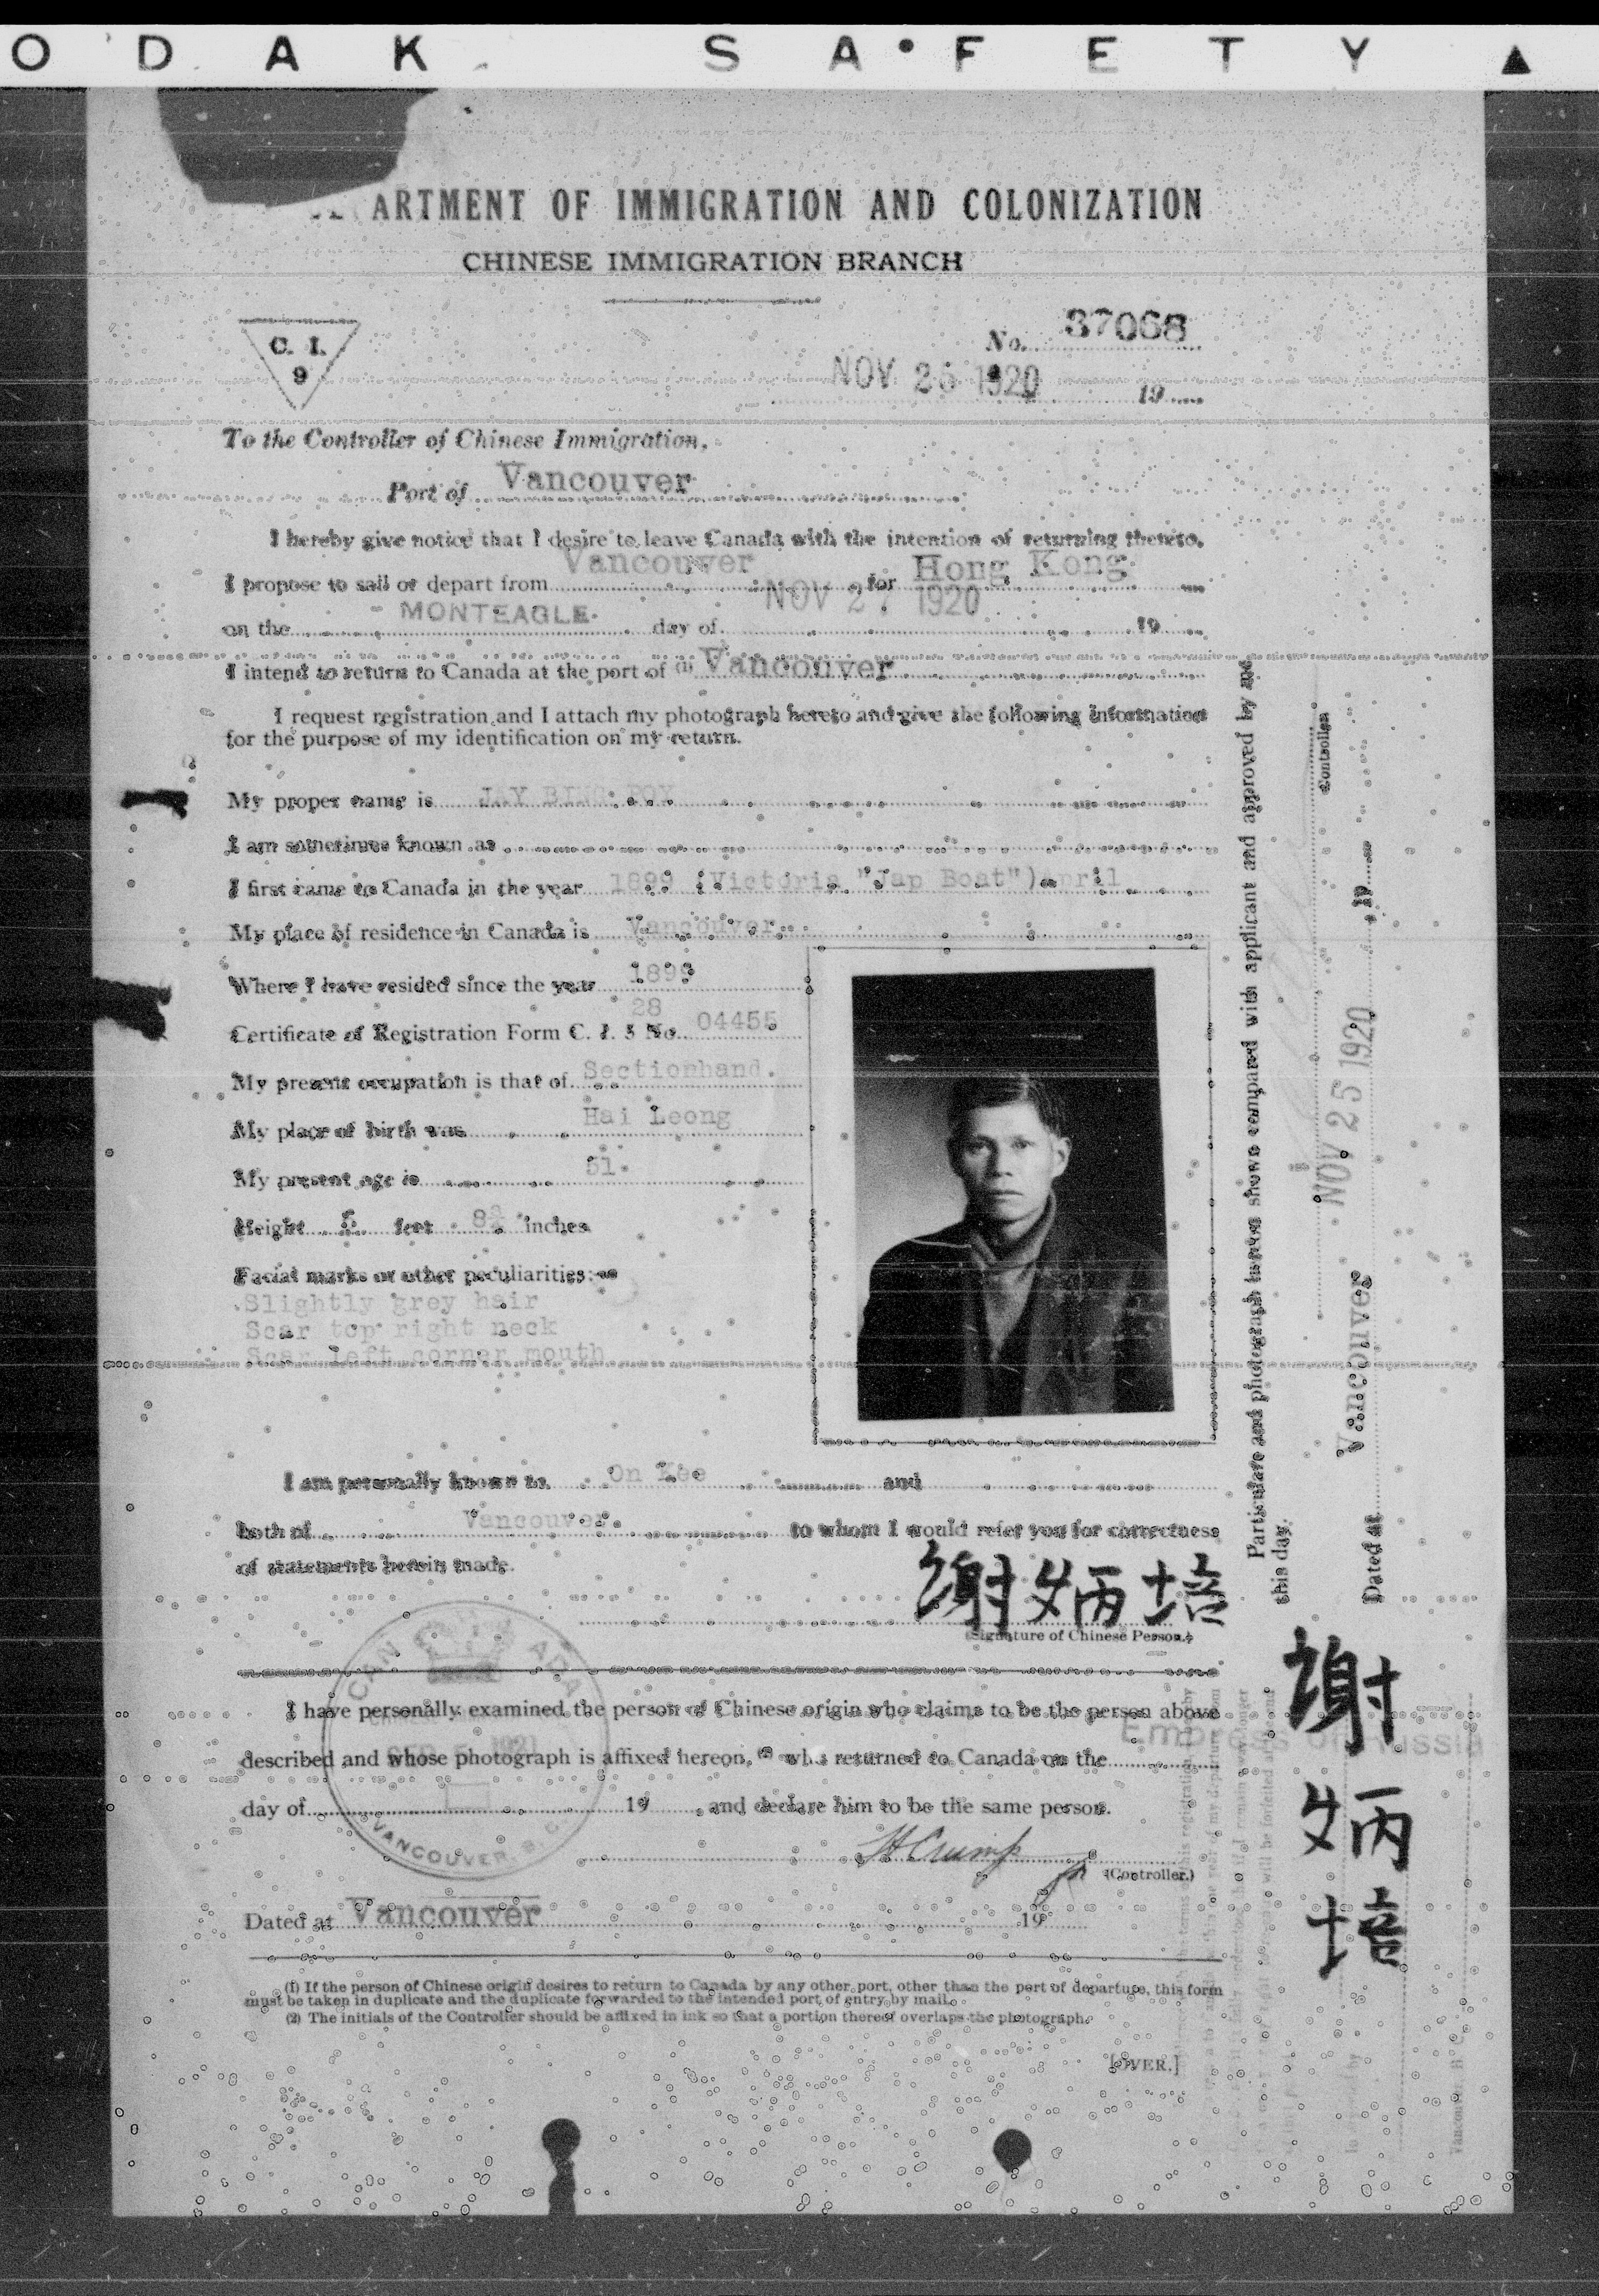 KODAK SAFETY ▲
ARTMENT OF IMMIGRATION AND COLONIZATION
CHINESE IMMIGRATION BRANCH
C. I.
9
No. 37068
NOV 25 1920 19
To the Controller of Chinese Immigration,
Port of Vancouver
I hereby give notice that I desire to leave Canada with the intention of returning thereto.
I propose to sail or depart from Vancouver for Hong Kong
on the MONTEAGLE day of NOV 27 1920 19
I intend to return to Canada at the port of (1) Vancouver
I request registration and I attach my photograph hereto and give the following information
for the purpose of my identification on my return.
My proper name is JAY BING POY
I am sometimes known as
I first came to Canada in the year 1899 (Victoria "Jap Boat") April
My place of residence in Canada is Vancouver
Where I have resided since the year 1899
28
Certificate of Registration Form C. I. 5 No. 04455
My present occupation is that of Sectionhand.
My place of birth was Hai Leong
My present age is 51.
Height 5 feet 8¾ inches
Facial marks or other peculiarities:
Slightly grey hair
Scar top right neck
Scar left corner mouth
I am personally known to On Kee and
both of Vancouver. to whom I would refer you for correctness
of statements herein made.
謝炳培
(Signature of Chinese Person.)
I have personally examined the person of Chinese origin who claims to be the person above
described and whose photograph is affixed hereon, (2) who returned to Canada on the
Empress of Russia
day of 19 and declare him to be the same person.
H Crump
(Controller.)
Dated at Vancouver 19
(1) If the person of Chinese origin desires to return to Canada by any other port, other than the port of departure, this form
must be taken in duplicate and the duplicate forwarded to the intended port of entry by mail.
(2) The initials of the Controller should be affixed in ink so that a portion thereof overlaps the photograph.
[OVER.]
CANADA
1921
VANCOUVER, B. C.
Particulars and photograph hereon shown compared with applicant and approved by me
this day.
Controller
Dated at Vancouver NOV 25 1920 19
謝炳培